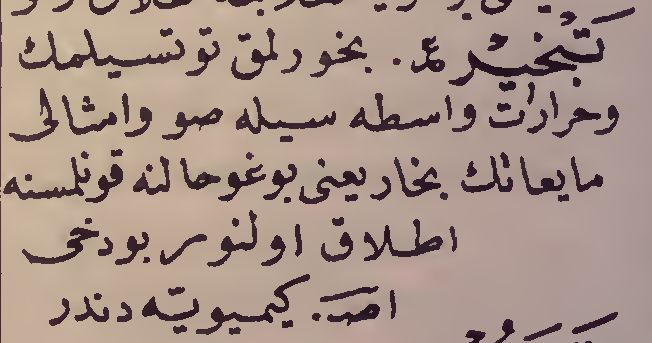 تَبْخِيرْ عـ. بخورلمق توتسيلمك
وحرارت واسطه سيله صو وامثالى
مايعاتك بخار يعنى بوغو حالنه قونلمسنه
اطلاق اولنور بودخى
اصـ. كيميويّه دندر